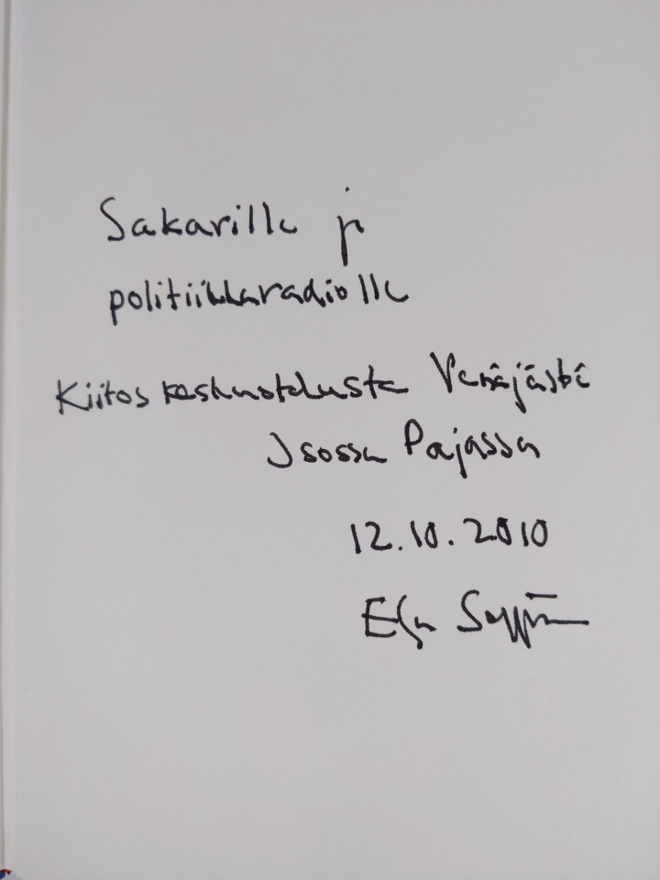 Sakarille ja
politiikkaradiolle
Kiitos keskustelusta Venäjästä
Isossa Pajassa
12.10.2010
Esa Seppänen